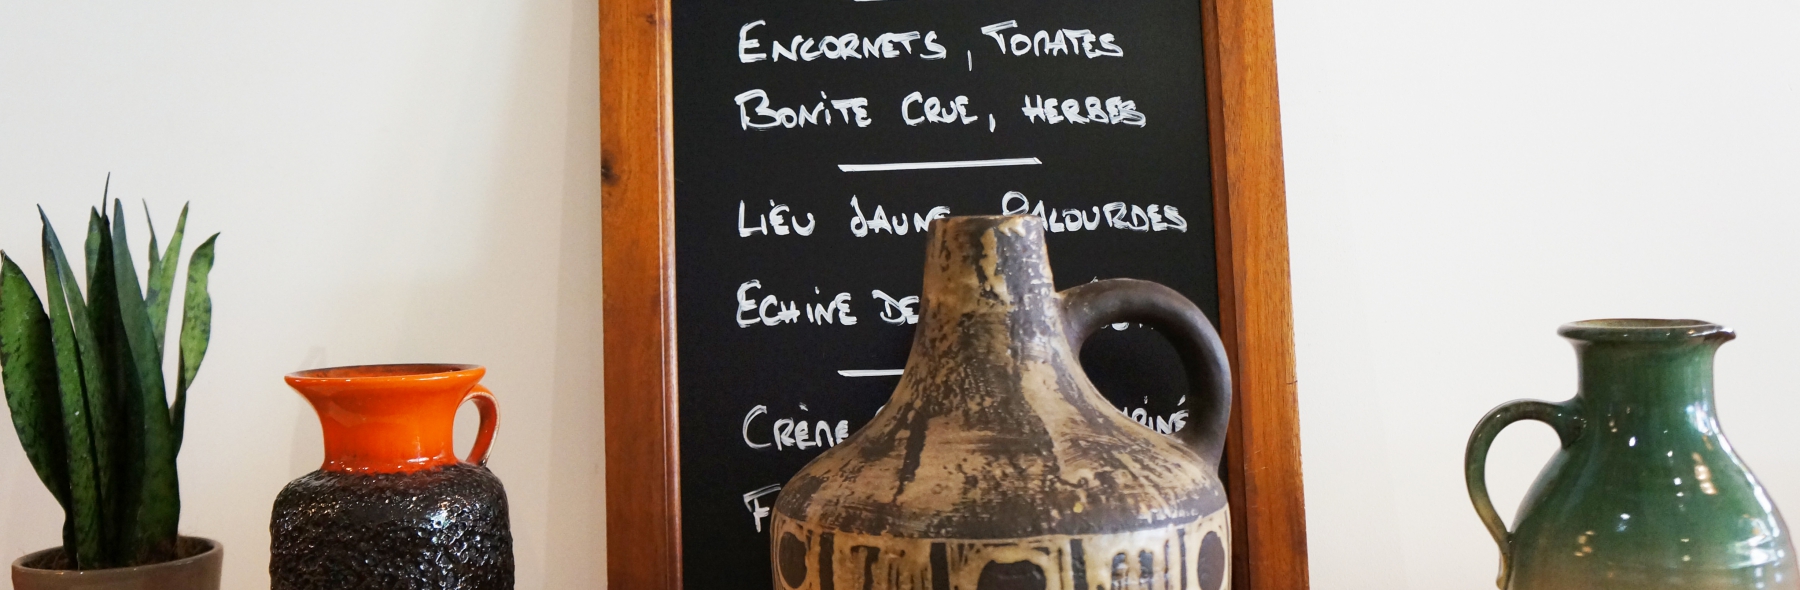 ENCORNETS, TOMATES
BONITE CRUE, HERBES
LIEU JAUNE PALOURDES
ECHINE DE
CRÈME